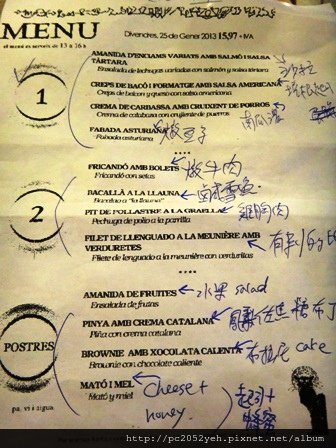 MENU
Divendres, 25 de Gener 2013 15,97 + IVA
el menú es serveix de 13 a 16 h
1
AMANIDA D'ENCIAMS VARIATS AMB SALMÓ I SALSA
TÀRTARA
Ensalada de lechugas variadas con salmón y salsa tártara
沙拉
CREPS DE BACÓ I FORMATGE AMB SALSA AMERICANA
Creps de bacon y queso con salsa americana
CREMA DE CARBASSA AMB CRUIXENT DE PORROS
南瓜湯
Crema de calabaza con crujiente de puerros
FABADA ASTURIANA
Fabada asturiana
豆子
****
2
FRICANDÓ AMB BOLETS
牛肉
Fricandó con setas
BACALLÀ A LA LLAUNA
Bacalao a "la llauna"
PIT DE POLLASTRE A LA GRAELLA
雞胸肉
Pechuga de pollo a la parrilla
FILET DE LLENGUADO A LA MEUNIÈRE AMB
VERDURETES
Filete de lenguado a la meunière con verduritas
****
POSTRES
AMANIDA DE FRUITES
水果 salad
Ensalada de frutas
PINYA AMB CREMA CATALANA
Piña con crema catalana
BROWNIE AMB XOCOLATA CALENTA
布朗尼 cake
Brownie con chocolate caliente
MATÓ I MEL
Mató y miel
Cheese +
honey
起司 +
蜂蜜
pa, vi i aigua
http://pc2052yeh.pixnet.net/album